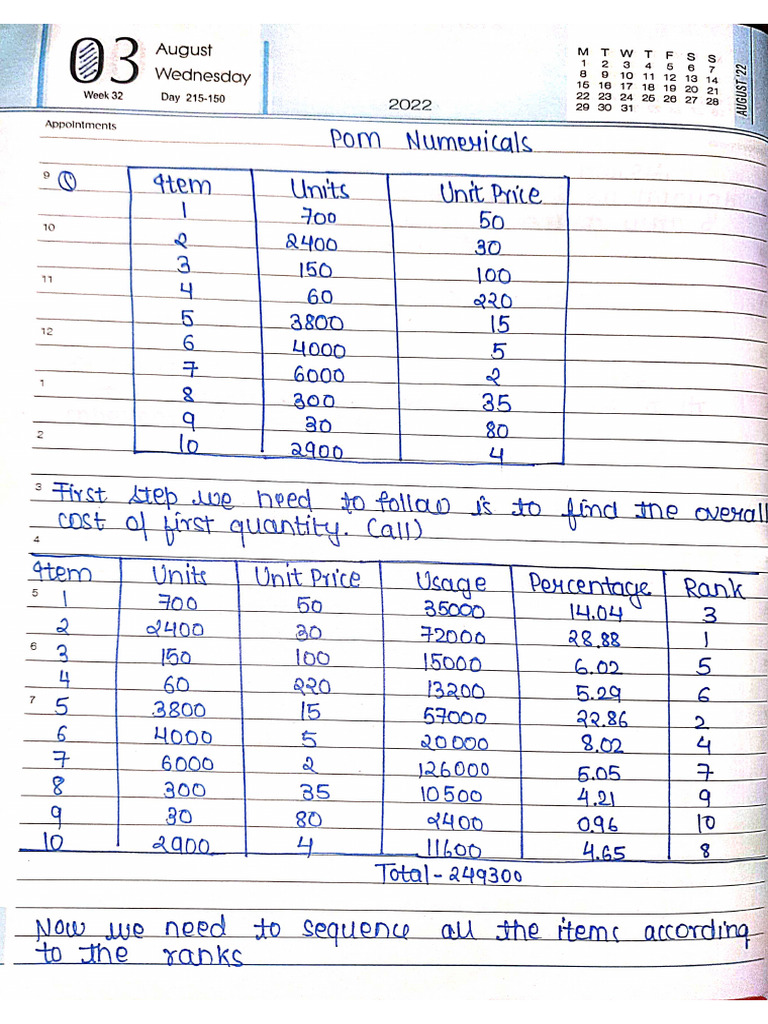 03 August
Wednesday
Week 32 Day 215-150
2022
M T W T F S S
1 2 3 4 5 6 7
8 9 10 11 12 13 14
15 16 17 18 19 20 21
22 23 24 25 26 27 28
29 30 31
AUGUST'22
Appointments
POM Numericals
9 ① Item Units Unit Price
1 700 50
10
2 2400 30
3 150 100
11
4 60 220
5 3800 15
12
6 4000 5
7 6000 2
1
8 300 35
9 30 80
2
10 2900 4
3 First step we need to follow is to find the overall
cost of first quantity. (all)
4
Item Units Unit Price Usage Percentage Rank
5 1 700 50 35000 14.04 3
2 2400 30 72000 28.88 1
6 3 150 100 15000 6.02 5
4 60 220 13200 5.29 6
7 5 3800 15 57000 22.86 2
6 4000 5 20000 8.02 4
7 6000 2 126000 5.05 7
8 300 35 10500 4.21 9
9 30 80 2400 0.96 10
10 2900 4 11600 4.65 8
Total - 249300
Now we need to sequence all the items according
to the ranks